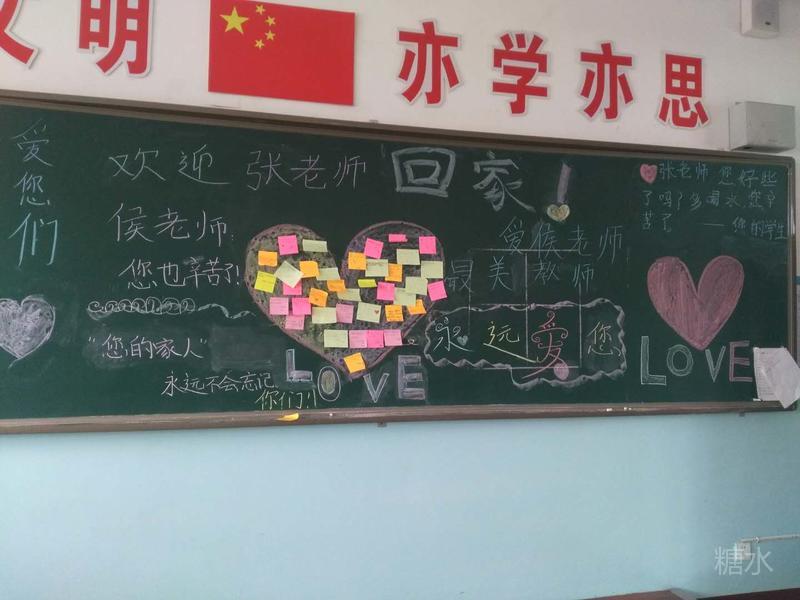 文明
亦学亦思
爱您们
欢迎张老师回家!
侯老师:
您也辛苦了!
"您的家人"
永远不会忘记
你们!!
LOVE
爱侯老师
最美教师
永远爱您
张老师您好些
了吗?多喝水,您辛
苦了——您的学生
LOVE
糖水